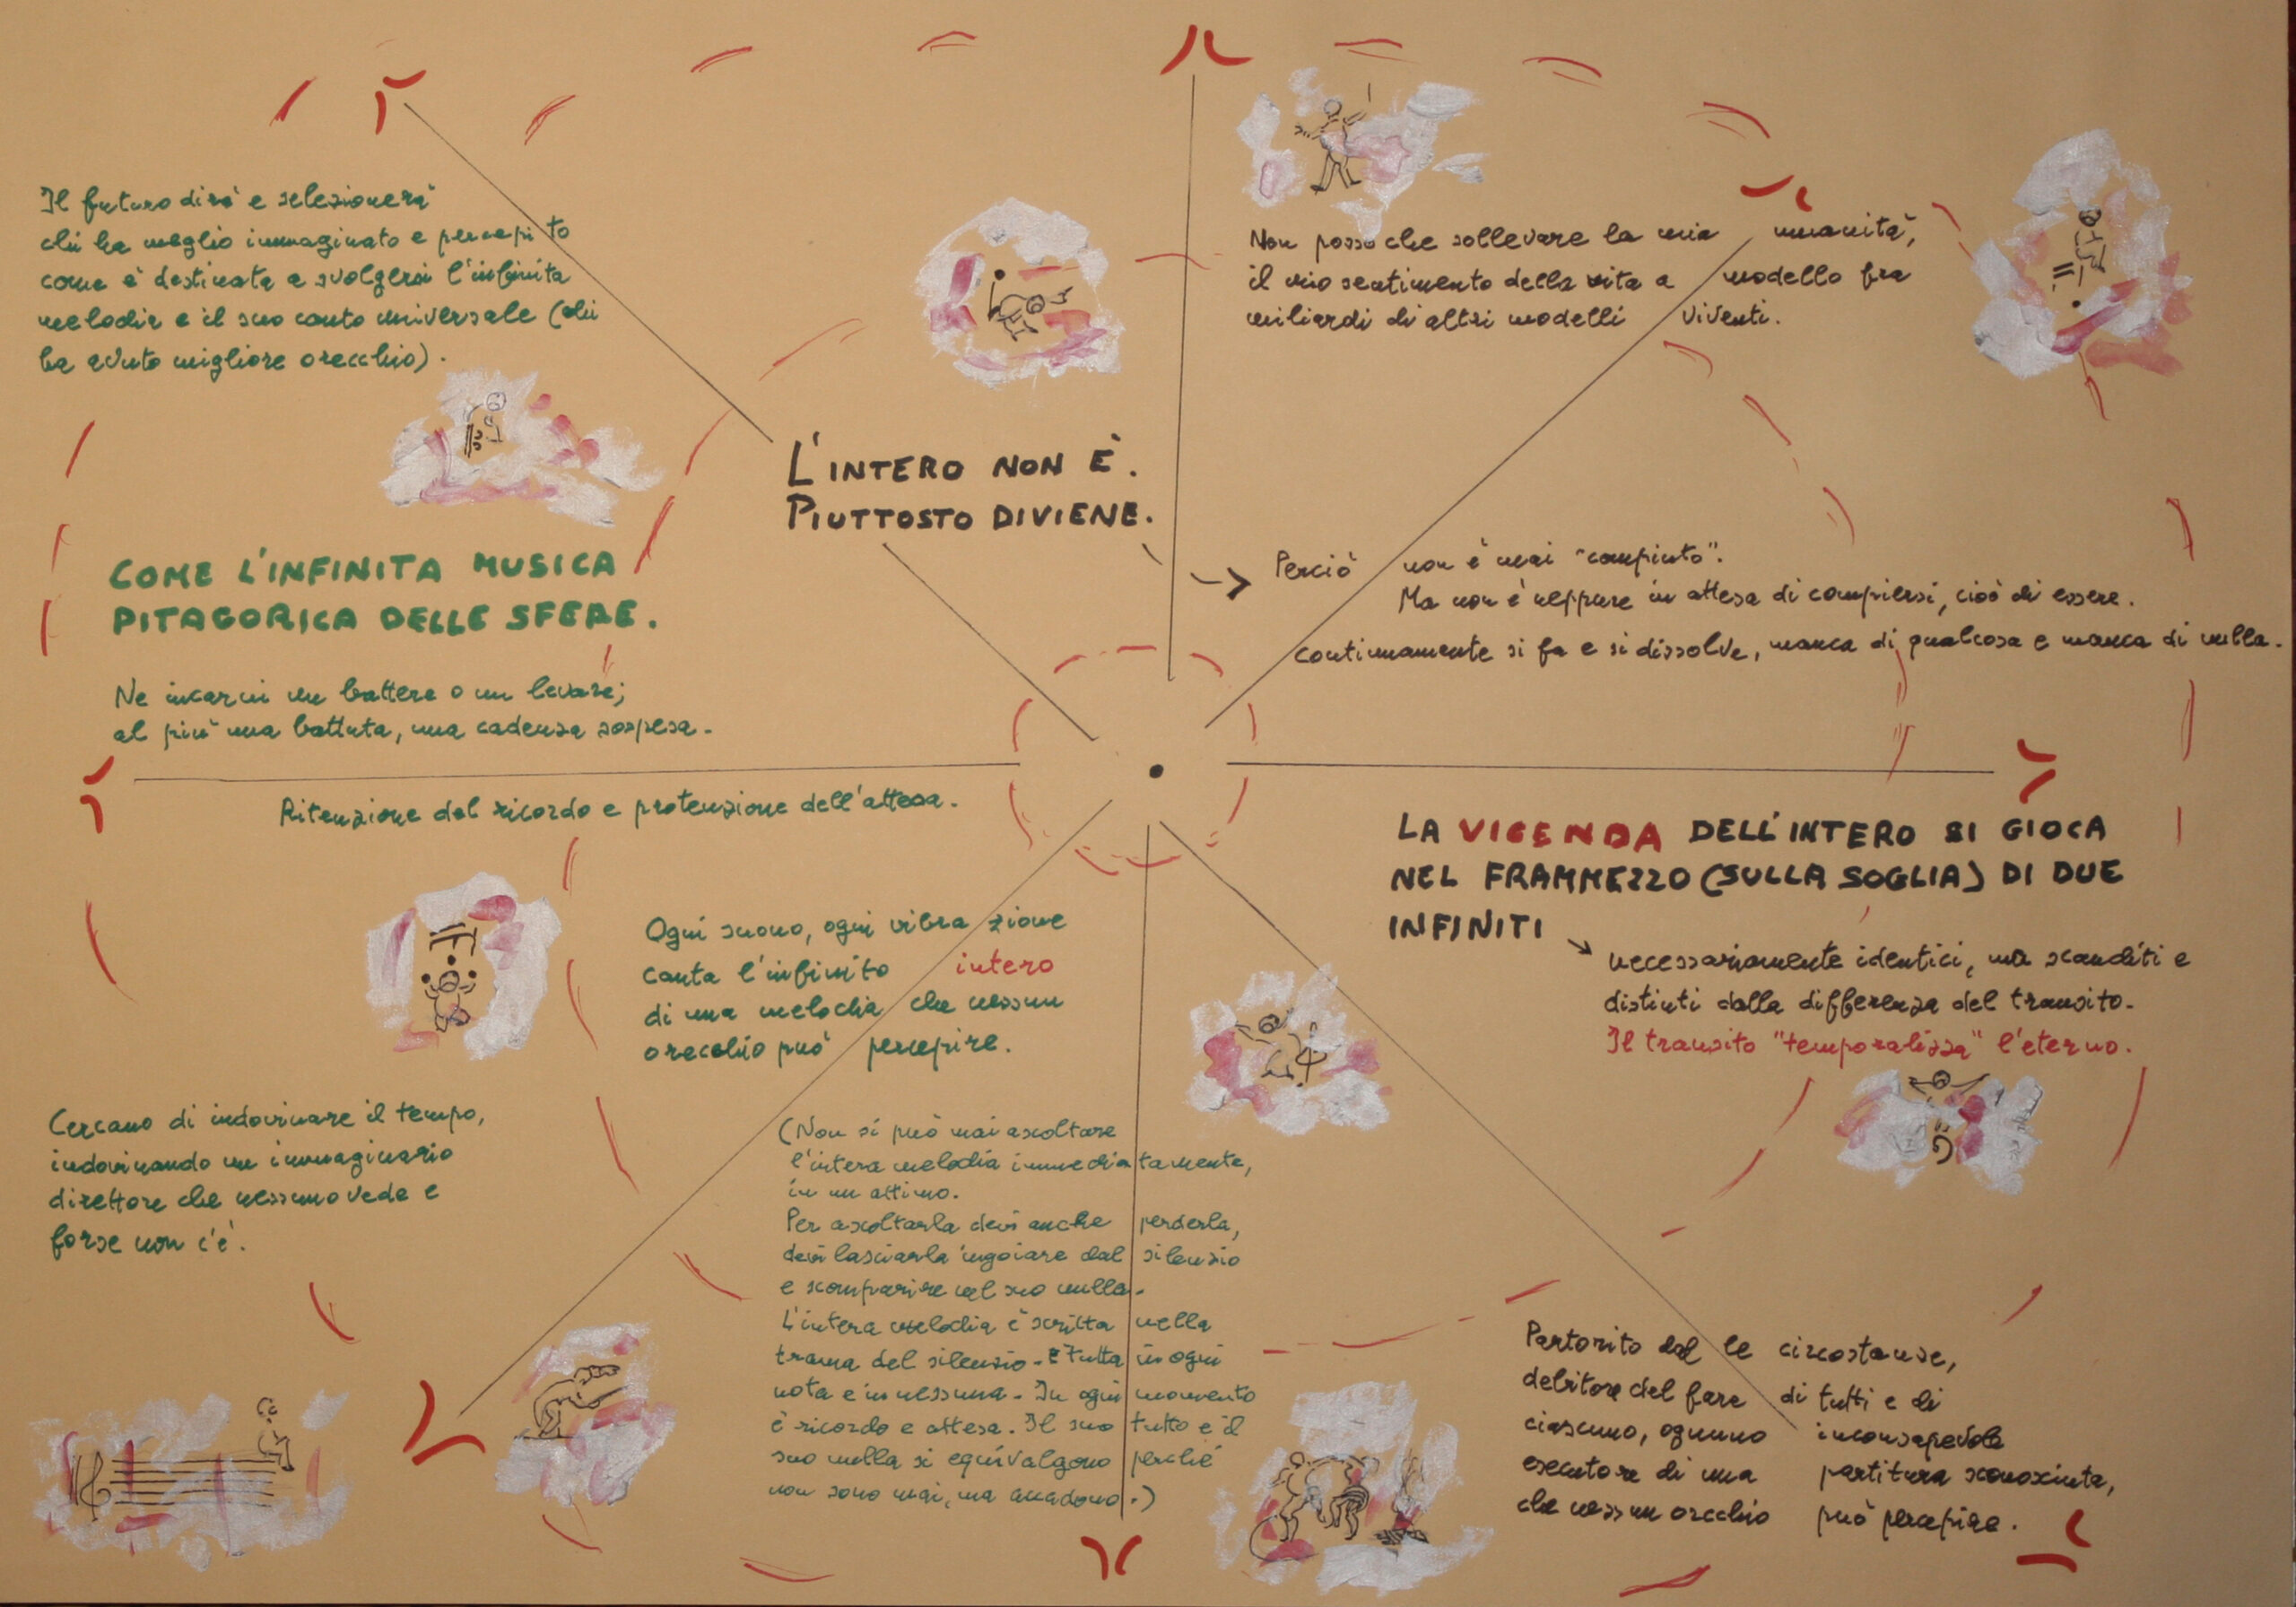 Il futuro dirà e selezionerà
chi ha meglio immaginato e percepito
come è destinata a svolgersi l'infinita
melodia e il suo canto universale (chi
ha avuto migliore orecchio).
COME L'INFINITA MUSICA
PITAGORICA DELLE SFERE.
Ne incarni un battere o un levare;
al più una battuta, una cadenza sospesa.
Ritenzione del ricordo e protenzione dell'attesa.
L'INTERO NON È.
PIUTTOSTO DIVIENE.
Non posso che sollevare la mia umanità,
il mio sentimento della vita a modello fra
miliardi di altri modelli viventi.
Perciò non è mai "compiuto".
Ma non è neppure in attesa di compiersi, cioè di essere.
Continuamente si fa e si dissolve, manca di qualcosa e manca di nulla.
LA VICENDA DELL'INTERO SI GIOCA
NEL FRAMMEZZO (SULLA SOGLIA) DI DUE
INFINITI
necessariamente identici, ma scanditi e
distinti dalla differenza del transito.
Il transito "temporalizza" l'eterno.
Ogni suono, ogni vibrazione
canta l'infinito intero
di una melodia che nessun
orecchio può percepire.
Cercano di indovinare il tempo,
indovinando un immaginario
direttore che nessuno vede e
forse non c'è.
(Non si può mai ascoltare
l'intera melodia immediatamente,
in un attimo.
Per ascoltarla devi anche perderla,
devi lasciarla ingoiare dal silenzio
e scomparire nel suo nulla.
L'intera melodia è scritta nella
trama del silenzio. È tutta in ogni
nota e in nessuna. In ogni momento
è ricordo e attesa. Il suo tutto e il
suo nulla si equivalgono perché
non sono mai, ma accadono.)
Partorito dalle circostanze,
debitore del fare di tutti e di
ciascuno, ognuno inconsapevole
esecutore di una partitura sconosciuta,
che nessun orecchio può percepire.